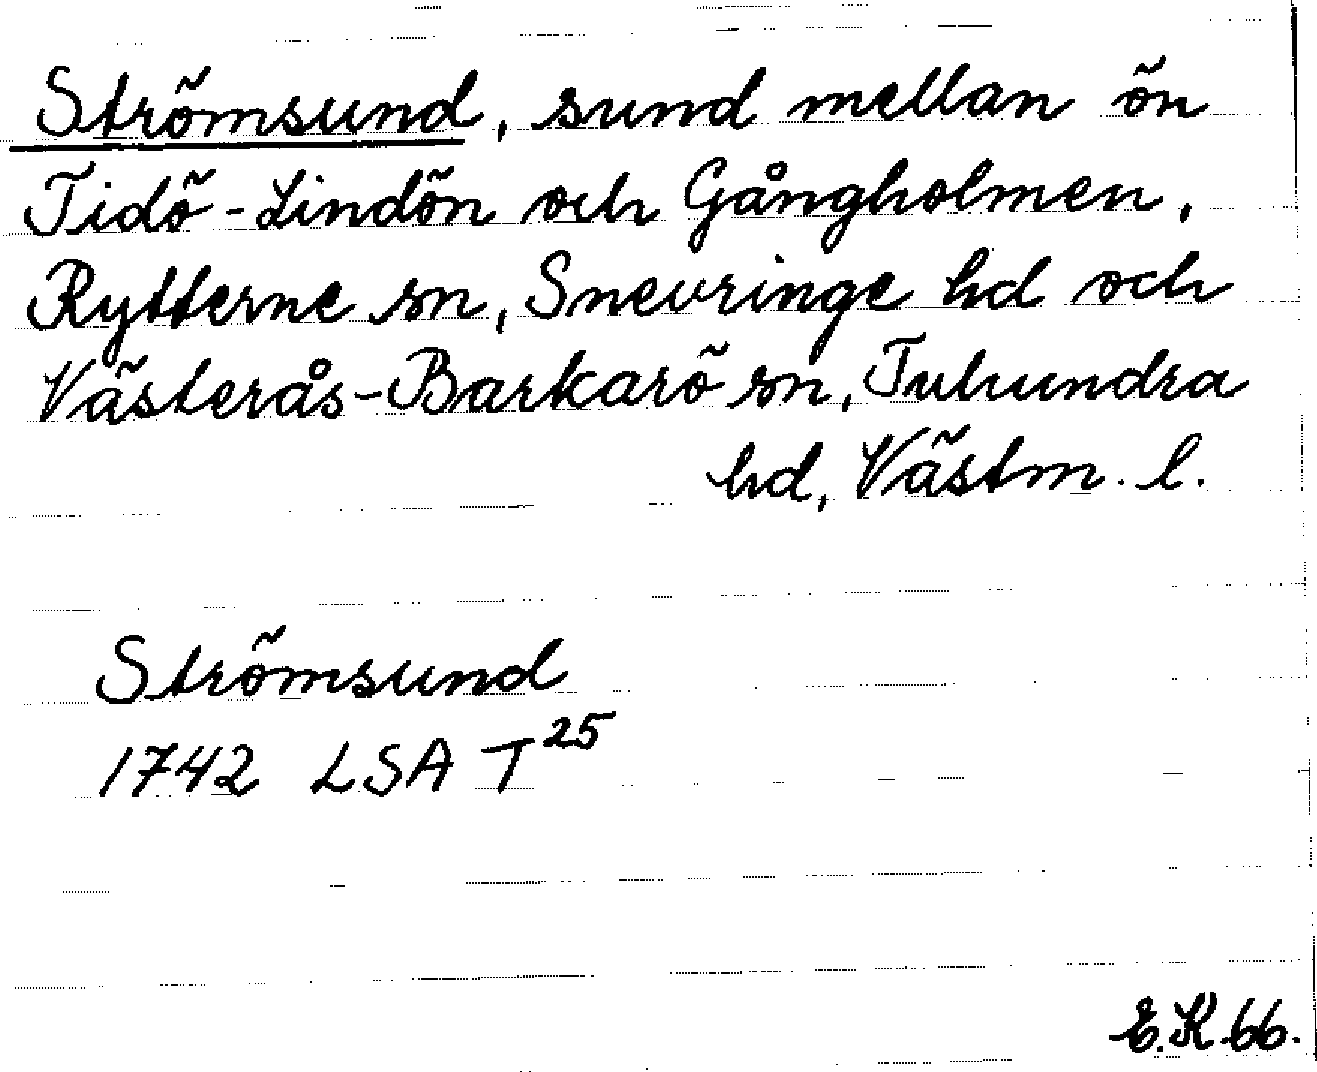 Strömsund, sund mellan ön
Tidö-Lindön och Gångholmen,
Rytterne sn, Snevringe hd och
Västerås-Barkarö sn, Tuhundra
hd, Västm. l.
Strömsund
1742 LSA T²⁵
E.K. 66.